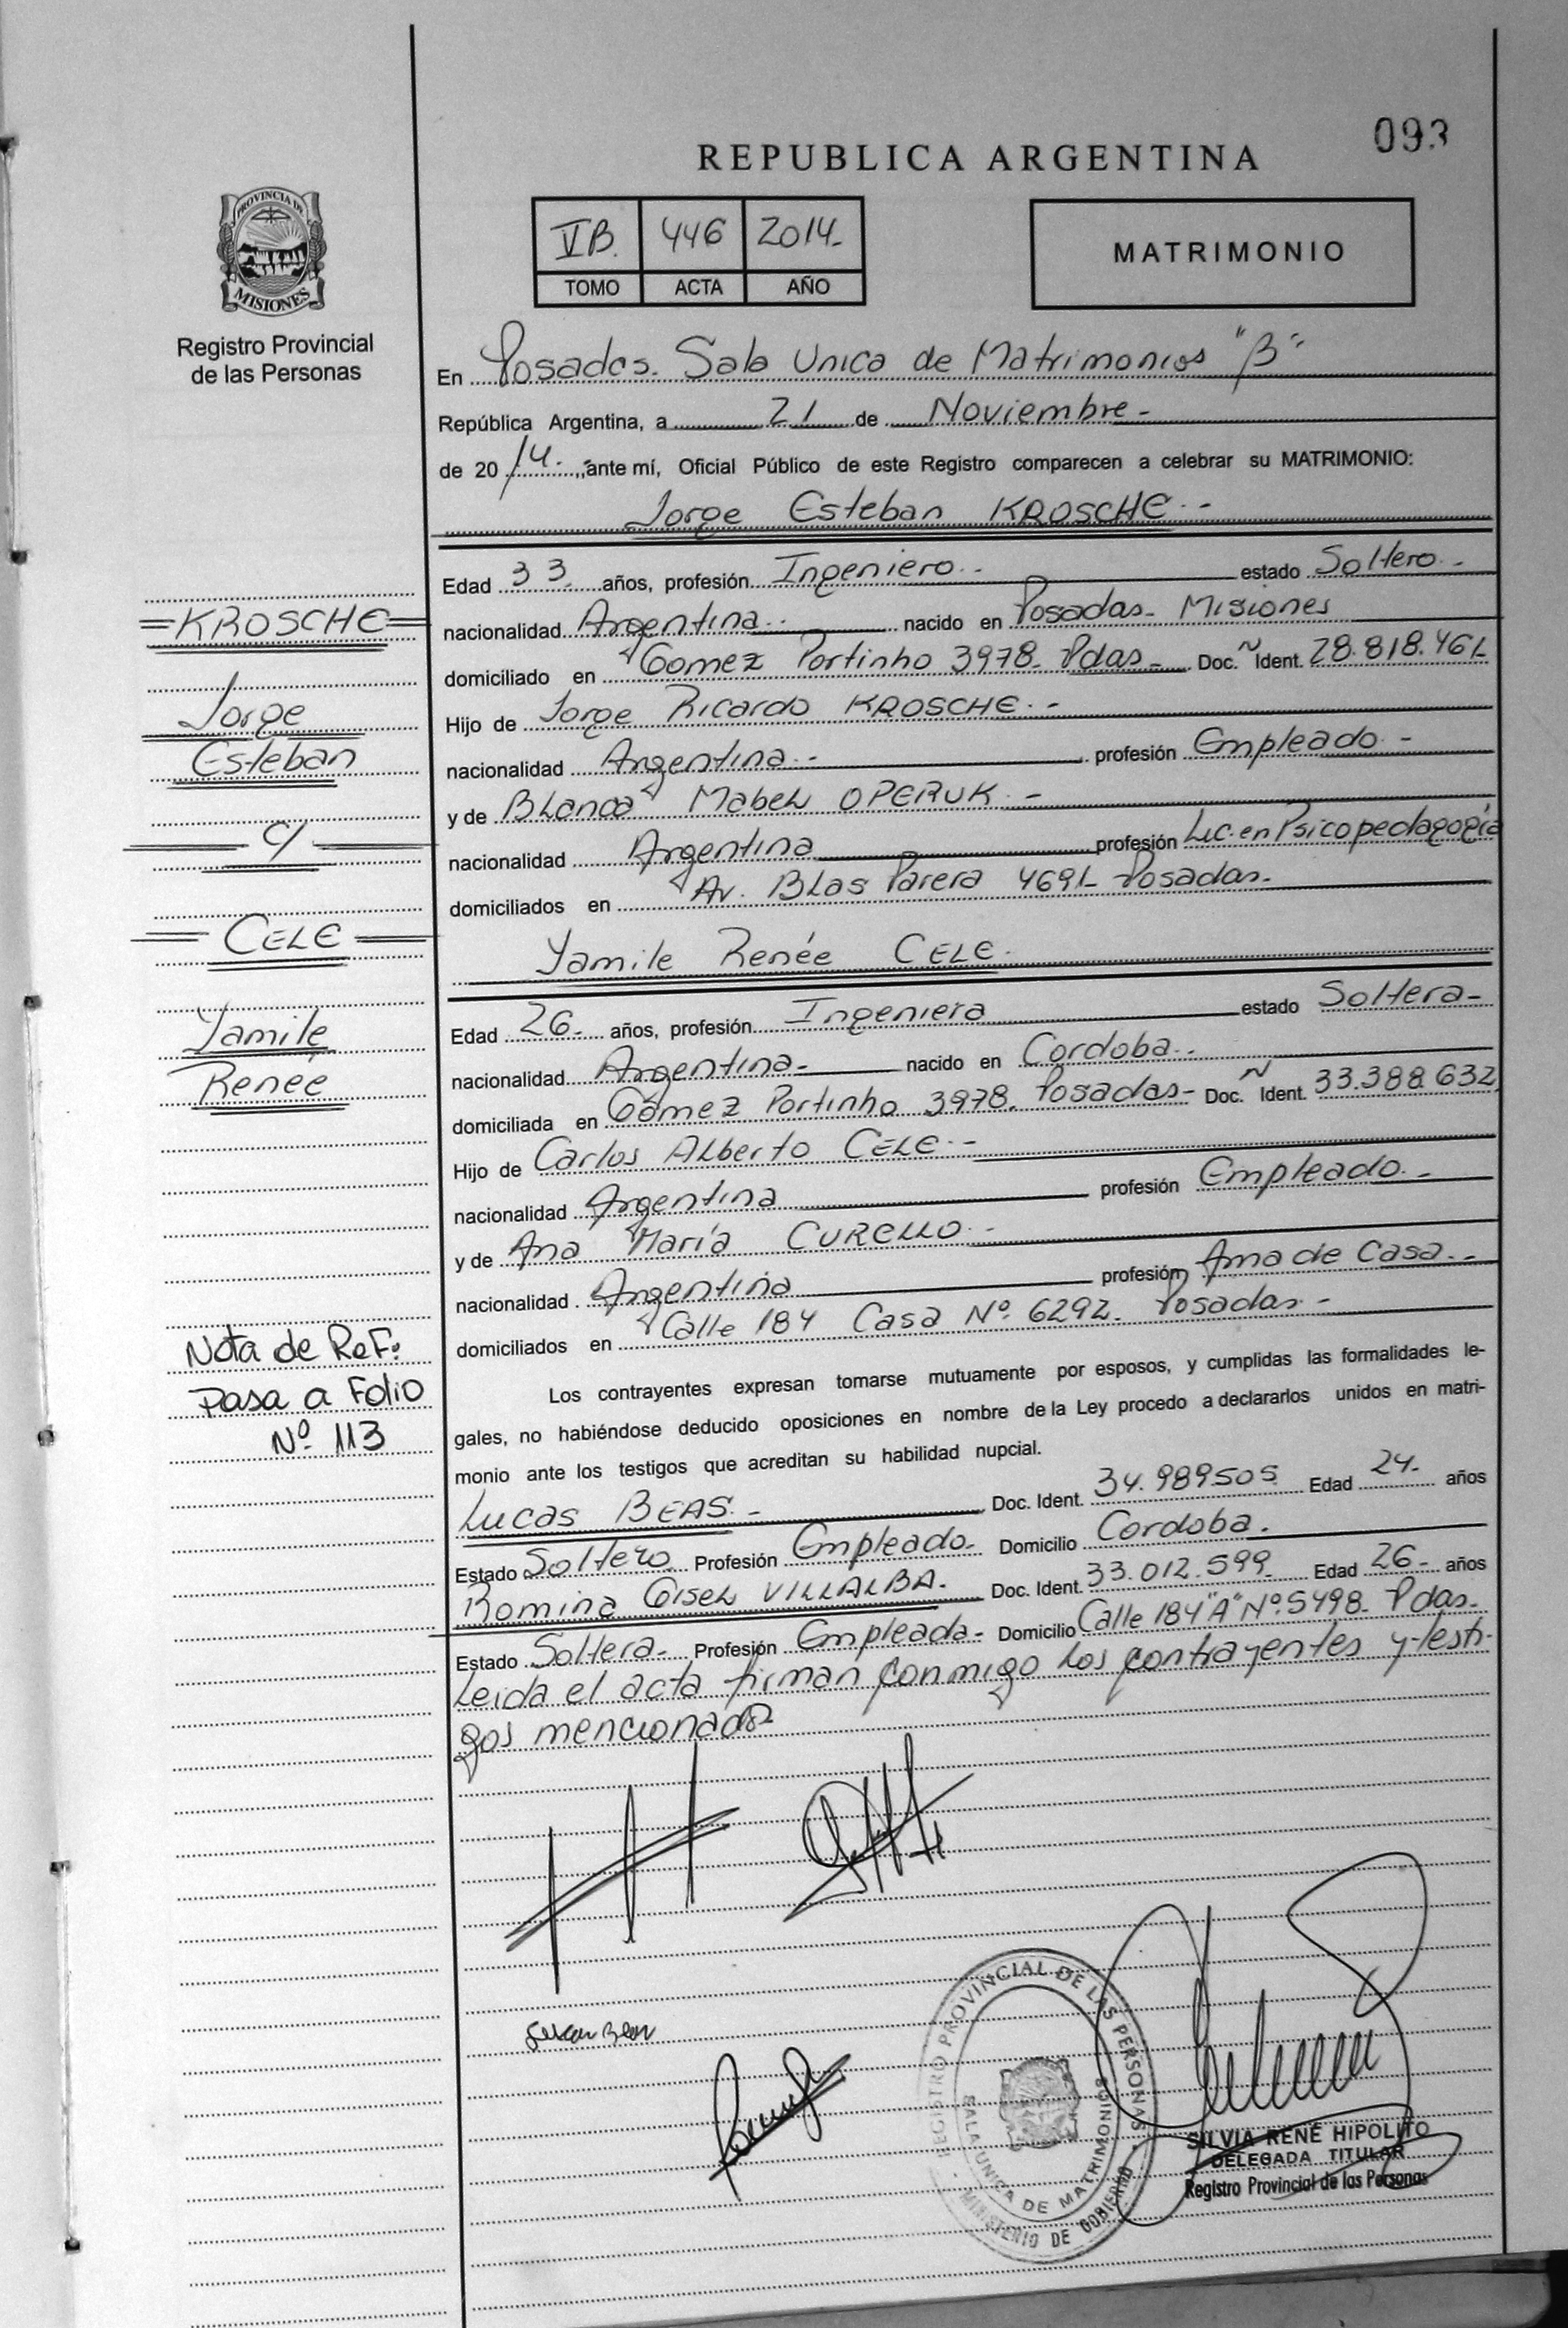 093
REPUBLICA ARGENTINA
VB. 446 2014-
TOMO ACTA AÑO
MATRIMONIO
PROVINCIA DE
MISIONES
Registro Provincial
de las Personas
En Posadas. Sala Unica de Matrimonios "B"
República Argentina, a 21 de Noviembre-
de 20 14. ante mí, Oficial Público de este Registro comparecen a celebrar su MATRIMONIO:
Jorge Esteban KROSCHE.-
Edad 33 años, profesión Ingeniero.- estado Soltero-
nacionalidad Argentina.- nacido en Posadas- Misiones
domiciliado en Gomez Portinho 3978- Pdas- Doc. Ident. 28.818.461-
Hijo de Jorge Ricardo KROSCHE.-
nacionalidad Argentina.- profesión Empleado-
y de Blanca Mabel OPERUK.-
nacionalidad Argentina profesión Lic. en Psicopedagogía
domiciliados en Av. Blas Parera 4691- Posadas-
Yamile Renée CELE.
Edad 26- años, profesión Ingeniera estado Soltera-
nacionalidad Argentina- nacido en Cordoba.-
domiciliada en Gómez Portinho 3978. Posadas- Doc. Ident. 33.388.632
Hijo de Carlos Alberto CELE.-
nacionalidad Argentina profesión Empleado.-
y de Ana María CURELLO.-
nacionalidad Argentina profesión Ama de Casa.-
domiciliados en Calle 184 Casa Nº 6292- Posadas-
Los contrayentes expresan tomarse mutuamente por esposos, y cumplidas las formalidades le-
gales, no habiéndose deducido oposiciones en nombre de la Ley procedo a declararlos unidos en matri-
monio ante los testigos que acreditan su habilidad nupcial.
Lucas BEAS.- Doc. Ident. 34.989505 Edad 24- años
Estado Soltero Profesión Empleado- Domicilio Cordoba.
Romina Gisel VILLALBA. Doc. Ident. 33.012.599 Edad 26- años
Estado Soltera- Profesión Empleada- Domicilio Calle 184 "A" Nº 5498- Pdas-
Leida el acta firman conmigo los contrayentes y testi-
gos mencionados
=KROSCHE=
Jorge
Esteban
C/
CELE
Yamile
Renée
Nota de Ref:
Pasa a Folio
Nº 113
REGISTRO PROVINCIAL DE LAS PERSONAS
SALA UNICA DE MATRIMONIOS
MINISTERIO DE GOBIERNO
SILVIA RENÉ HIPOLITO
DELEGADA TITULAR
Registro Provincial de las Personas